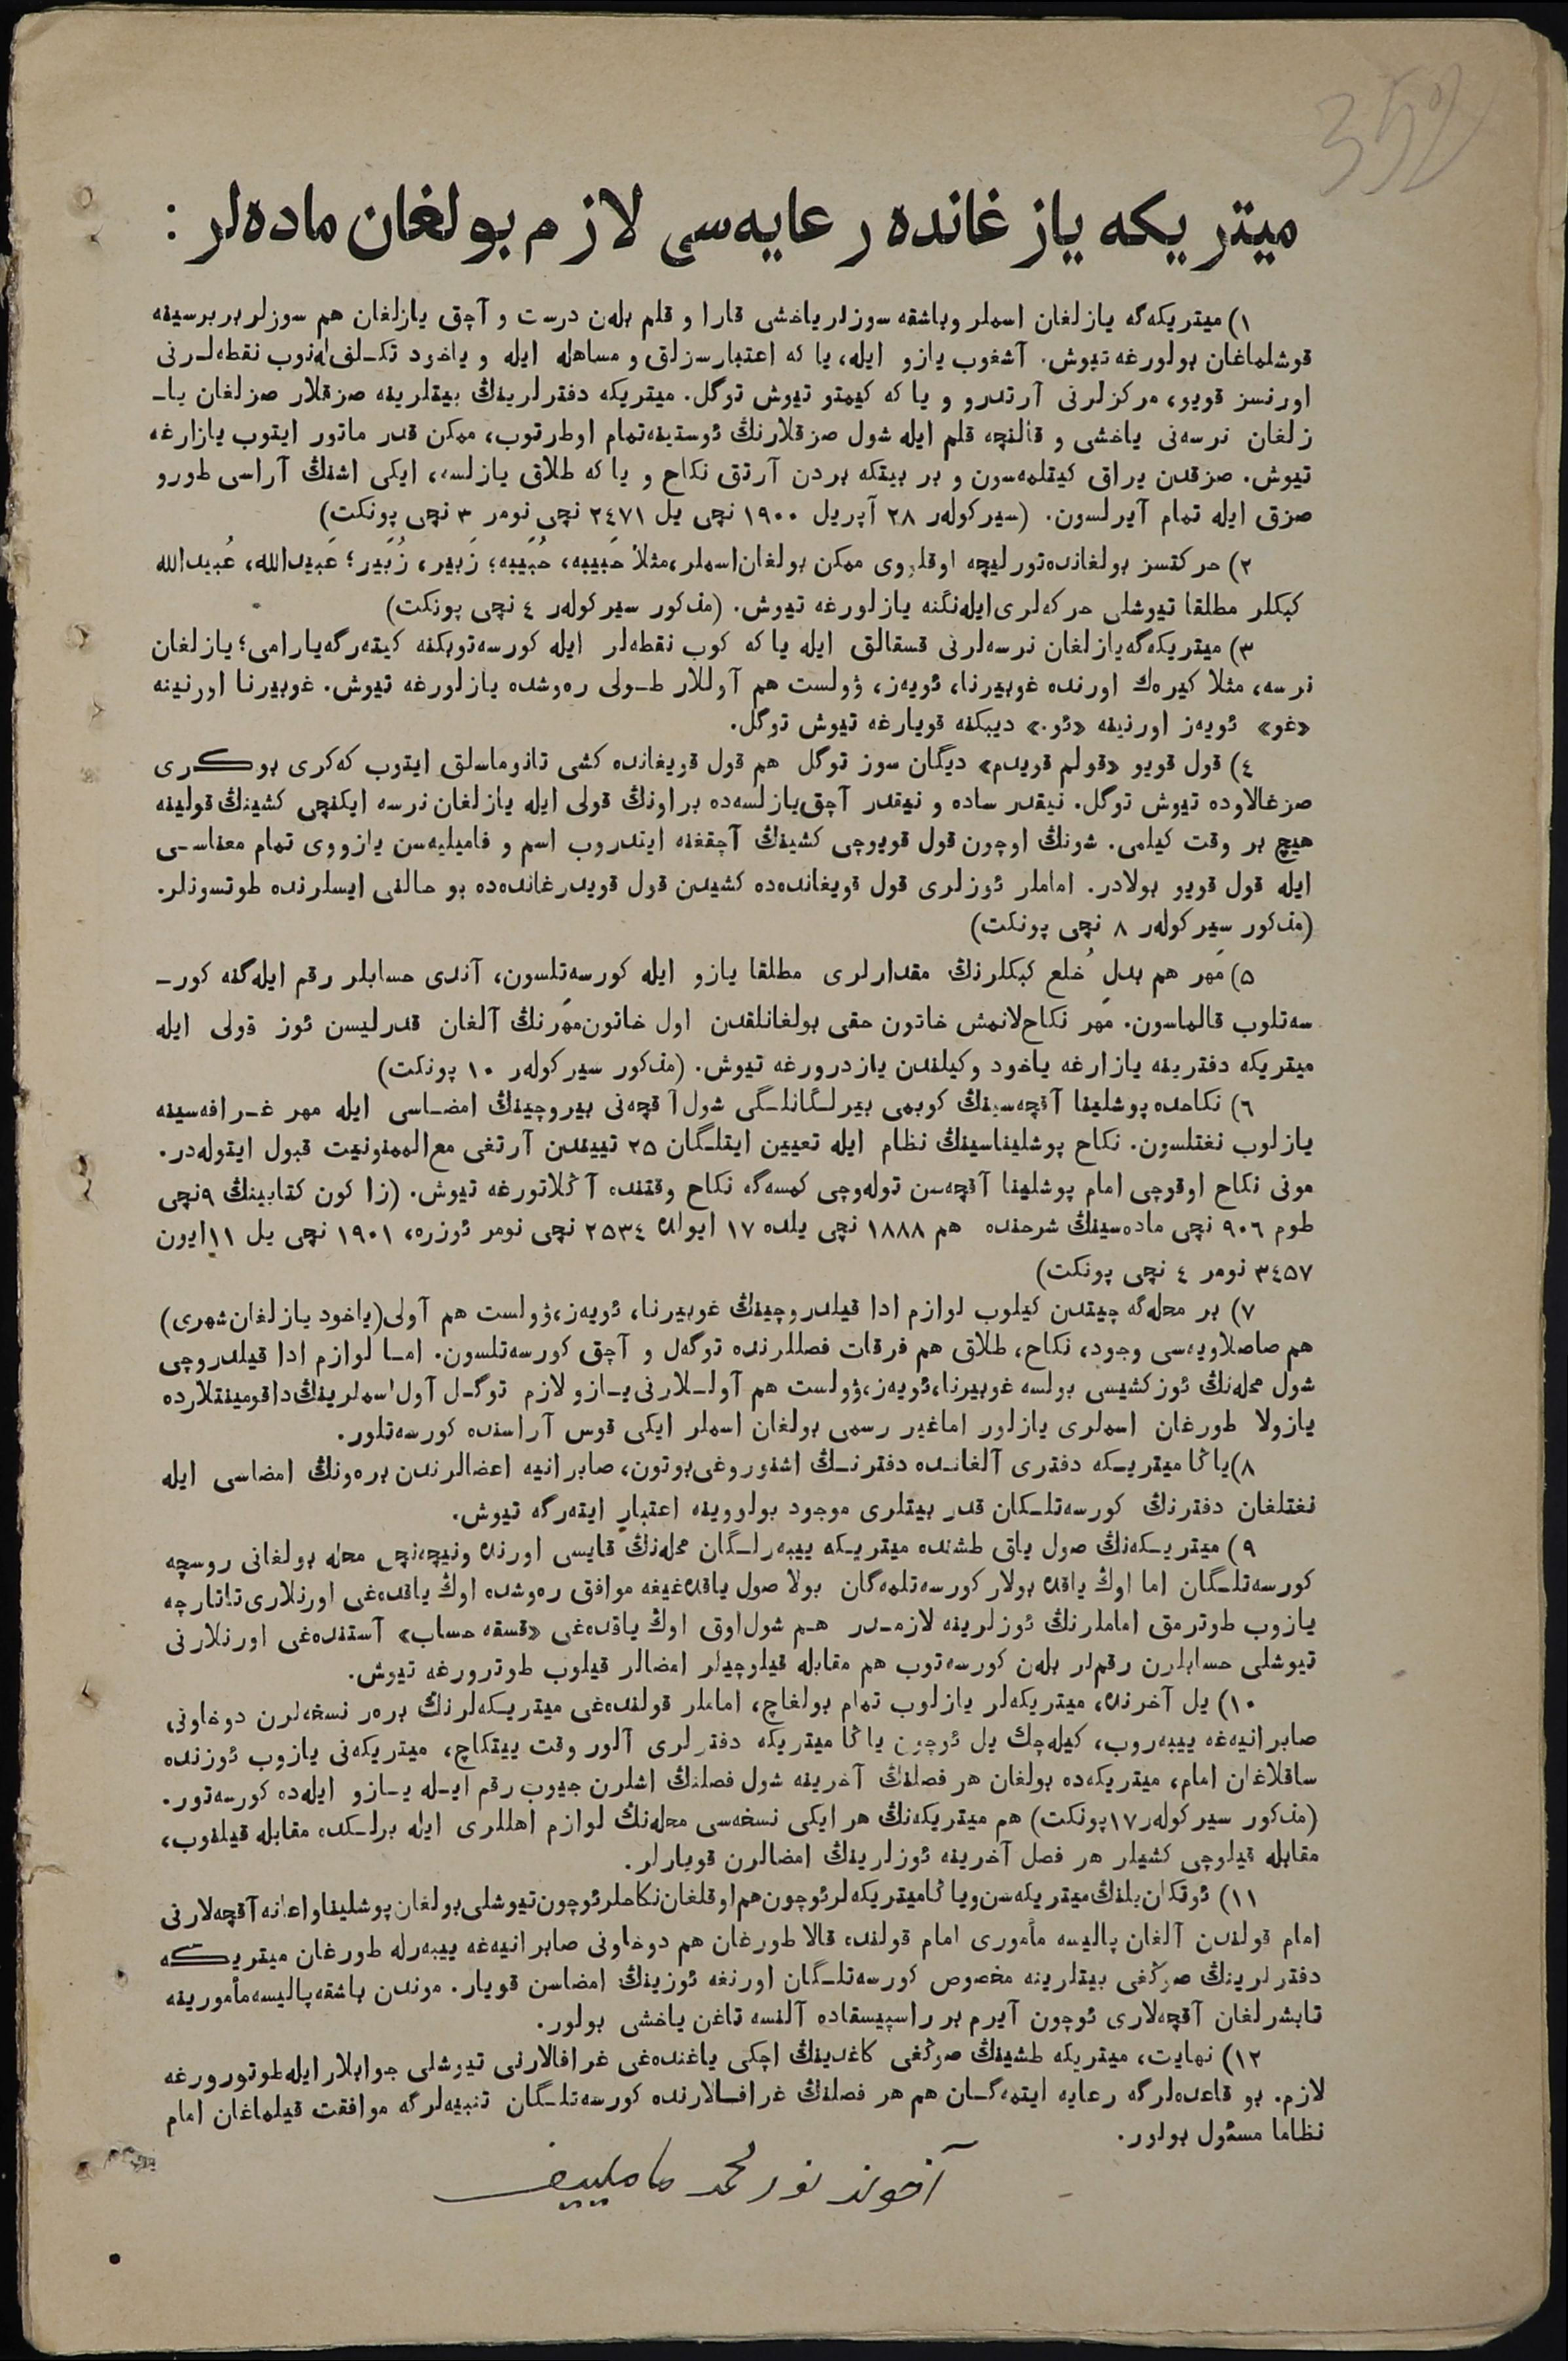 352
میتریكه یازغانده رعایه‌سی لازم بولغان ماده‌لر :
۱) میتریكه‌گه یازلغان اسملر وباشقه سوزلر یاخشی قارا و قلم بله‌ن درست و آچق یازلغان هم سوزلر بربرسینه
قوشلماغان بولورغه تیوش. آشغوب یازو ایله، یا كه اعتبارسزلق و مساهله ایله و یاخود تكـلف‌له‌نوب نقطه‌لـرنی
اورنسز قویو، مركزلرنی آرتدرو و یا كه كیمتو تیوش توگل. میتریكه دفترلرینڭ بیتلرینه صزقلار صزلغان یاـ
زلغان نرسه‌نی یاخشی و قالنچه قلم ایله شول صزقلارنڭ ئوستینه‌تمام اوطرتوب، ممكن قدر ماتور ایتوب یازارغه
تیوش. صزقدن یراق كیتلمه‌سون و بر بیتكه بردن آرتق نكاح و یا كه طلاق یازلسه، ایكی اشنڭ آراسی طورو
صزق ایله تمام آیرلسون. (سیركوله‌ر ۲۸ آپریل ۱۹۰۰ نچی یل ۲٤۷۱ نچی نومر ۳ نچی پونكت)
۲) حركتسز بولغانده‌تورلیچه اوقلووی ممكن بولغان‌اسملر،مثلا حَبیبه، حُبَیبه؛ زَبیر، زُبَیر؛ عَبیدالله، عُبیدالله
كبكلر مطلقا تیوشلی حركه‌لری‌ایله‌نگنه یازلورغه تیوش. (مذكور سیركوله‌ر ٤ نچی پونكت)
۳) میتریكه‌گه‌یازلغان نرسه‌لرنی قسقالق ایله یا كه كوب نقطه‌لر ایله كورسه‌توبكنه كیته‌رگه‌یارامی؛ یازلغان
نرسه، مثلا كیره‌ك اورنده غوبیرنا، ئویه‌ز، ۋولست هم آوللار طـولی ره‌وشده یازلورغه تیوش. غوبیرنا اورنینه
«غو» ئویه‌ز اورنینه «ئو.» دیبكنه قویارغه تیوش توگل.
٤) قول قویو «قولم قویدم» دیگان سوز توگل هم قول قویغانده كشی تانوماسلق ایتوب كه‌كری بوكـری
صزغالاوده تیوش توگل. نیقدر ساده و نیقدر آچق‌یازلسه‌ده براونڭ قولی ایله یازلغان نرسه ایكنچی كشینڭ قولینه
هیچ بر وقت كیلمی. شونڭ اوچون قول قویوچی كشینڭ آچقغنه ایتدروب اسم و فامیلیه‌سن یازووی تمام معناسـی
ایله قول قویو بولادر. اماملر ئوزلری قول قویغانده‌ده كشیدن قول قویدرغانده‌ده بو حالنی ایسلرنده طوتسونلر.
(مذكور سیركوله‌ر ۸ نچی پونكت)
۵) مَهر هم بدل خُلع كبكلرنڭ مقدارلری مطلقا یازو ایله كورسه‌تلسون، آندی حسابلر رقم ایله‌گنه كورـ
سه‌تلوب قالماسون. مَهر نكاح‌لانمش خاتون حقی بولغانلقدن اول خاتون‌مَهرنڭ آلغان قدرلیسن ئوز قولی ایله
میتریكه دفترینه یازارغه یاخود وكیلندن یازدرورغه تیوش. (مذكور سیركوله‌ر ۱۰ پونكت)
٦) نكاحده پوشلینا آقچه‌سینڭ كوبمی بیرلـگانلـگی شول آقچه‌نی بیروچینڭ امضـاسی ایله مهر غـرافه‌سینه
یازلوب نغتلسون. نكاح پوشلیناسینڭ نظام ایله تعیین ایتلـگان ۲۵ تییندن آرتغی مع‌الممنونیت قبول ایتوله‌در.
مونی نكاح اوقوچی امام پوشلینا آقچه‌سن توله‌وچی كمسه‌گه نكاح وقتنده آڭلاتورغه تیوش. (زاكون كتابینڭ ۹نچی
طوم ۹۰٦ نچی ماده‌سینڭ شرحنده هم ۱۸۸۸ نچی یلده ۱۷ ایولده ۲۵۳٤ نچی نومر ئوزره، ۱۹۰۱ نچی یل ۱۱ایون
۳٤۵۷ نومر ٤ نچی پونكت)
۷) بر محله‌گه چیتدن كیلوب لوازم ادا قیلدروچینڭ غوبیرنا، ئویه‌ز،ۋولست هم آولی(یاخود یازلغان‌شهری)
هم صاصلاویه‌سی وجود، نكاح، طلاق هم فرقات فصللرنده توگه‌ل و آچق كورسه‌تلسون. امـا لوازم ادا قیلدروچی
شول محله‌نڭ ئوزكشیسی بولسه غوبیرنا،ئویه‌ز،ۋولست هم آولـلارنی‌یـازو لازم توگـل آول‌اسملرینڭ‌داقومینتلارده
یازولا طورغان اسملری یازلور اماغیر رسمی بولغان اسملر ایكی قوس آراسنده كورسه‌تلور.
۸)یاڭا میتریـكه دفتری آلغانـده دفترنـڭ اشنوروغی‌بوتون، صابرانیه اعضالرندن بره‌ونڭ امضاسی ایله
نغتلغان دفترنڭ كورسه‌تلـكان قدر بیتلری موجود بولووینه اعتبار ایته‌رگه تیوش.
۹) میتریـكه‌نڭ صول یاق طشنده میتریـكه ییبه‌رلـگان محله‌نڭ قایسی اورنده ونیچه‌نچی محله بولغانی روسچه
كورسه‌تلـگان اما اوڭ یاقده بولار كورسه‌تلمه‌گان بولا صول یاقده‌غیغه موافق ره‌وشده اوڭ یاقده‌غی اورنلاری‌تاتارچه
یازوب طوترمق اماملرنڭ ئوزلرینه لازمـدر هـم شول‌اوق اوڭ یاقده‌غی «قسقه حساب» آستنده‌غی اورنلارنی
تیوشلی حسابلرن رقم‌لر بله‌ن كورسه‌توب هم مقابله قیلوچیلر امضالر قیلوب طوترورغه تیوش.
۱۰) یل آخرنده، میتریكه‌لر یازلوب تمام بولغاچ، اماملر قولنده‌غی میتریـكه‌لرنڭ بره‌ر نسخه‌لرن دوخاونی
صابرانیه‌غه ییبه‌روب، كیله‌چك یل ئوچون یاڭا میتریكه دفترلری آلور وقت ییتكاچ، میتریكه‌نی یازوب ئوزنده
ساقلاغان امام، میتریكه‌ده بولغان هر فصلنڭ آخرینه شول فصلنڭ اشلرن جیوب رقم ایـله یـازو ایله‌ده كورسه‌تور.
(مذكور سیركوله‌ر۱۷پونكت) هم میتریكه‌نڭ هر ایكی نسخه‌سی محله‌نڭ لوازم اهللری ایله برلـكده مقابله قیلنوب،
مقابله قیلوچی كشیلر هر فصل آخرینه ئوزلرینڭ امضالرن قویارلر.
۱۱) ئوتكان‌یلنڭ‌میتریكه‌سن‌ویاڭامیتریكه‌لرئوچون‌هم‌اوقلغان‌نكاحلرئوچون‌تیوشلی‌بولغان‌پوشلیناواعانه‌آقچه‌لارنی
امام قولندن آلغان پالیسه مأموری امام قولنده قالا طورغان هم دوخاونی صابرانیه‌غه ییبه‌رله طورغان میتریـكه
دفترلرینڭ صوڭغی بیتلرینه مخصوص كورسه‌تلـگان اورنغه ئوزینڭ امضاسن قویار. موندن باشقه‌پالیسه‌مأمورینه
تابشرلغان آقچه‌لاری ئوچون آیرم بر راسپیسقاده آلنسه تاغن یاخشی بولور.
۱۲) نهایت، میتریكه طشینڭ صوڭغی كاغدینڭ اچكی یاغنده‌غی غرافالارنی تیوشلی جوابلار ایله‌طوتورورغه
لازم. بو قاعده‌لرگه رعایه ایتمه‌گـان هم هر فصلنڭ غرافـالارنده كورسه‌تلـگان تنبیه‌لرگه موافقت قیلماغان امام
نظاما مسئول بولور.
آخوند نورمحمد مامليیف